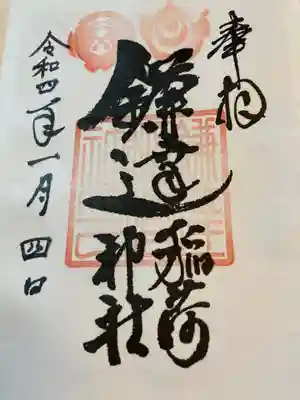 奉拝
鎌達
稲荷
神社
令和四年一月四日